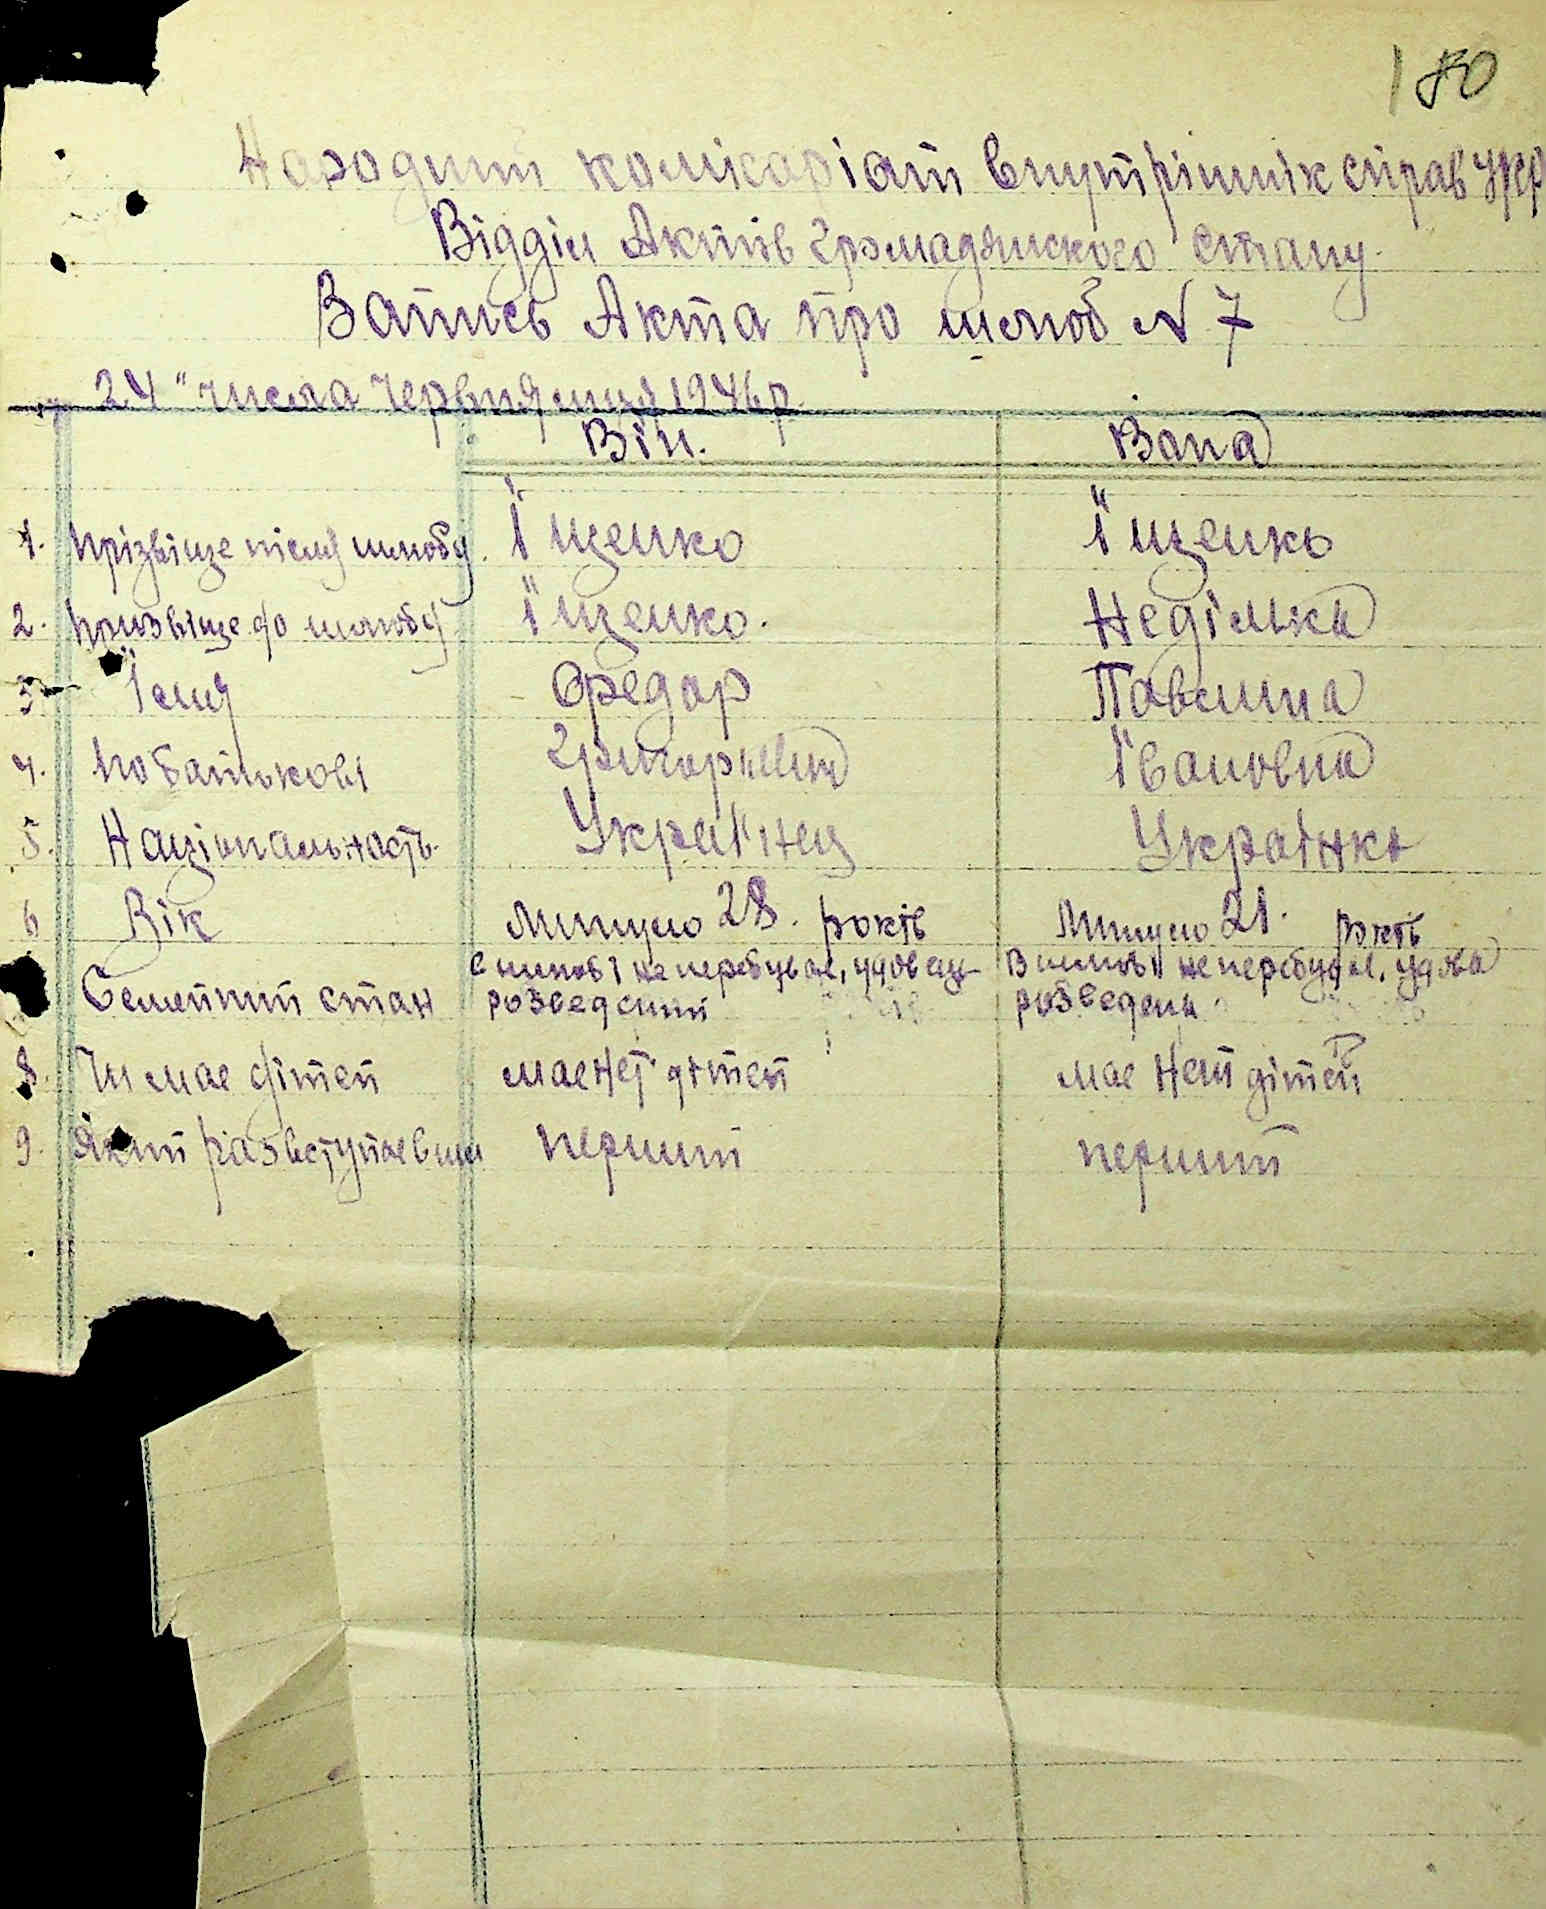 180
Народний комісаріат внутрішніх справ УРСР
Відділ Актів громадянского стану.
Запись Акта про шлюб N 7
24 "числа Червня місяця 1946 р.
Він. Вона
1. прізвіще після шлюбу. Їщенко Їщенко
2. призвіще до шлюбу Їщенко. Неділька
3. Їмя Федор Павлина
4. по батькові Григорович Івановна
5. Національность. Украінец Украінка
6 Вік минуло 28. років минуло 21. років
Семейний стан в шлюбі не перебував, удовец В шлюбі не перебувал, удова
розведений розведена
8. Чи мае дітей мае нет дітей мае нет дітей
9. Який раз вступае в шлюб перший перший